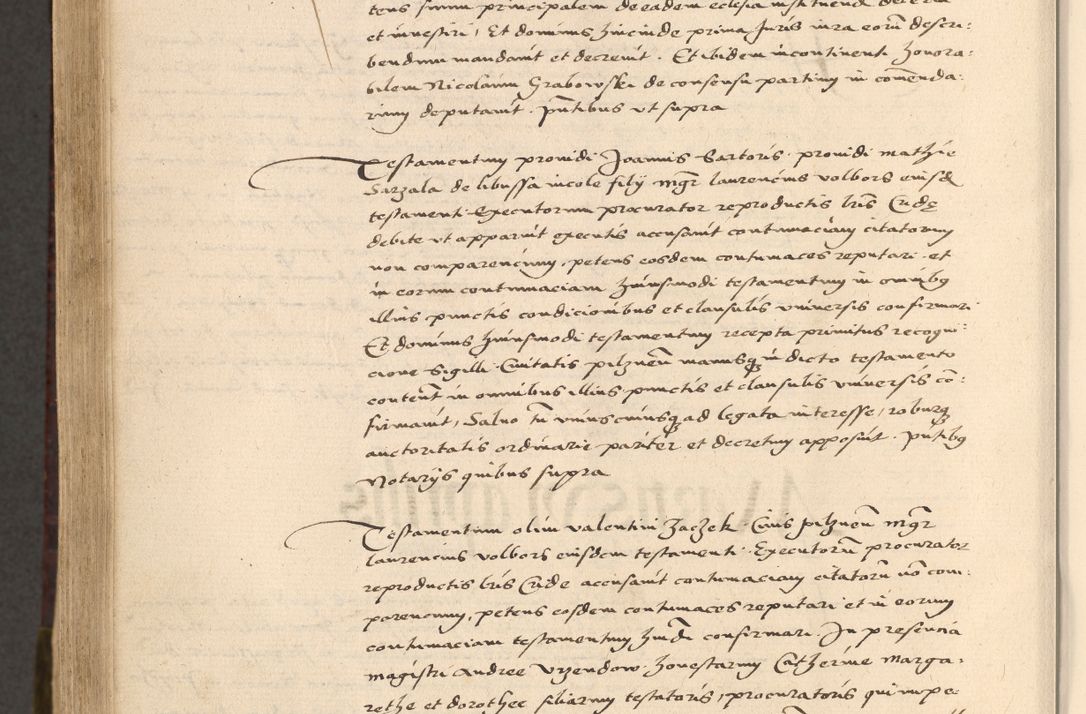 tens suum principalem de eadem eclesia instituend decerni
et investiri, Et dominus huiusde prima Juris iura eorū descri:
bendum mandavit et decrevit. Et ibidem incontinenti honora:
bilem Nicolaum Grabowski de consensu partium in comenda:
rium deputavit. pntibus vt supra
Testamentum providi Joannis Sartoris. providi mathie
Sarzala de libussa incole filij mgr laurencius volbors eiusd
testamenti Executorum procurator reproductis lris Cridę
debite vt apparuit executis accusavit contumaciam citatorum
non comparencium, petens eosdem contumaces reputari. et
in eorum contumaciam huiusmodi testamentum in omnibq
illius punctis condicionibus et clausulis vniversis confirmari
Et dominus huiusmodi testamentum recepta primitus recogni:
cione Sigilli Civitatis pilznen manusq in dicto testamento
content in omnibus illius punctis et clausulis vniversis cō:
firmavit, Salvo tn vniuscuiusq ad legata interesse, roburq
auctoritatis ordinarie pariter et decretum apposuit. pntibq
Notarijs quibus supra
Testamentum olim valentini Zaczek Civis pilznen mgr
laurencius volbors eiusdem testamenti Executorū procurator
reproductis lris Cride accusavit contumaciam citatorū nō com:
parencium, petens eosdem contumaces reputari et in eorum
contumaciam testamentum humdi confirmari. In presencia
magistri Andree Vrzendow. honestarum Catherine Marga:
rethe et dorothee filiarum testatoris, procuratoris qui nupe: